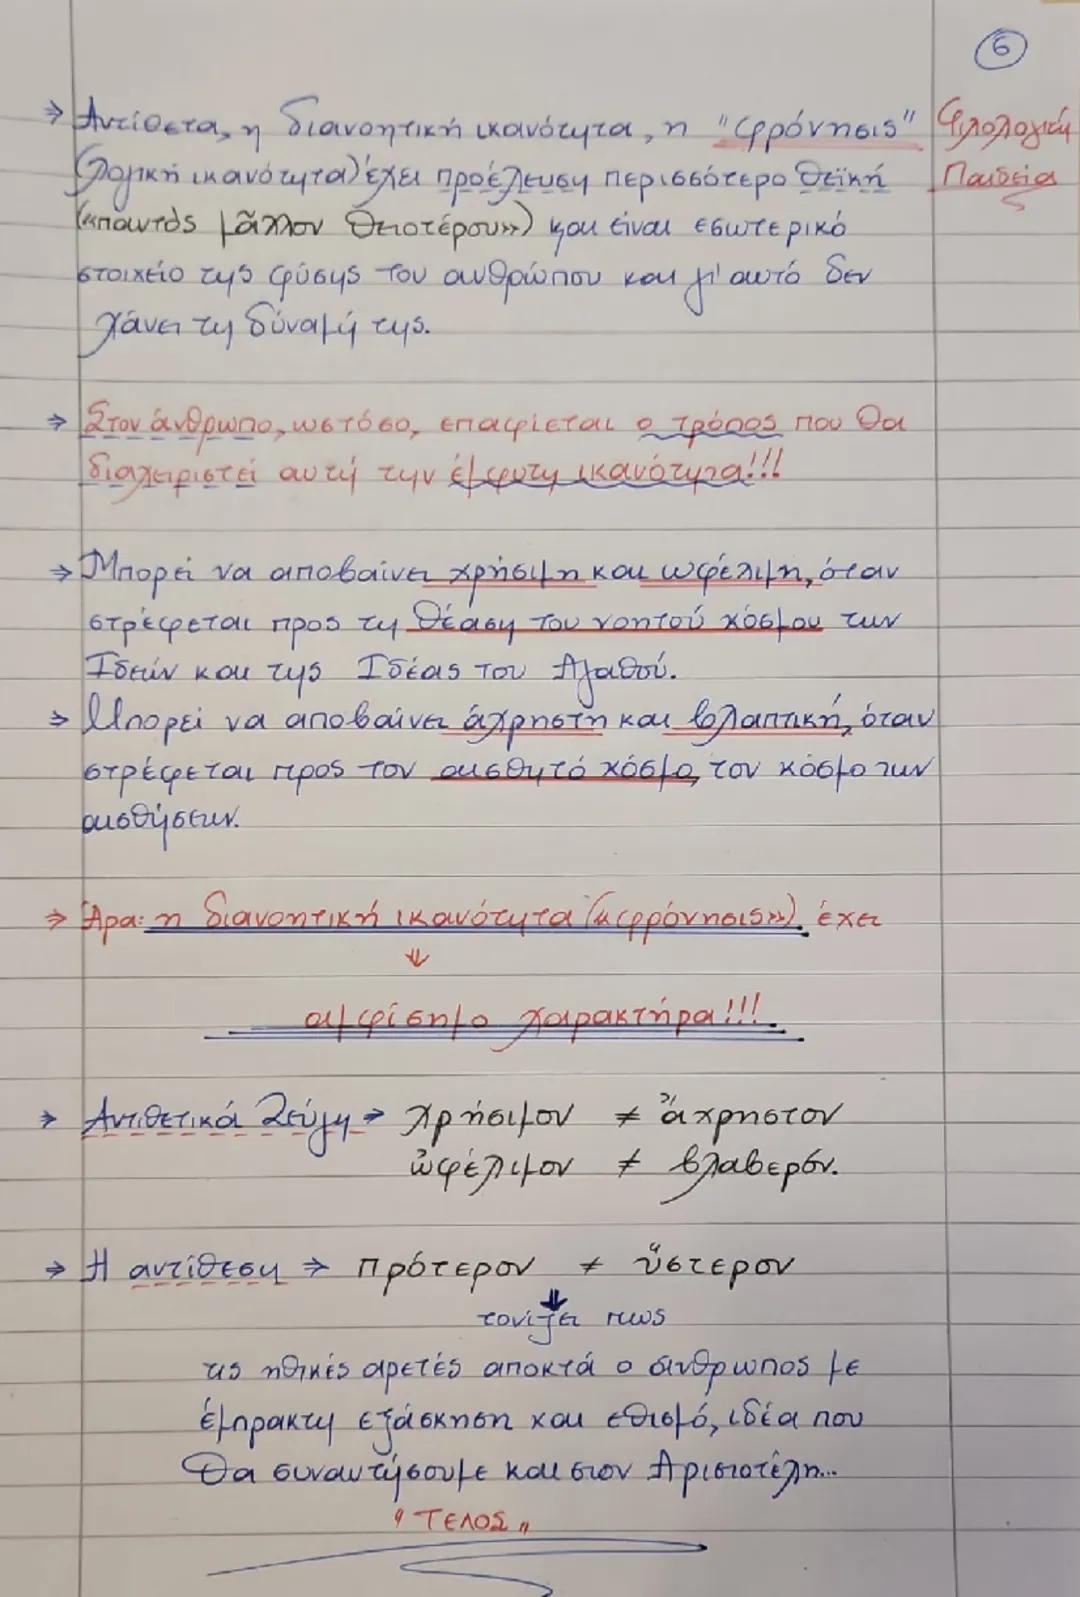 6
Φιλολογική
Παιδεία
⇒ Αντίθετα, η διανοητική ικανότητα, η "φρόνησις"
(λογική ικανότητα) έχει προέλευση περισσότερο θεϊκή
(«παντὸς μᾶλλον θειοτέρου») και είναι εσωτερικό
στοιχείο της φύσης του ανθρώπου και γι' αυτό δεν
χάνει τη δύναμή της.
⇒ Στον άνθρωπο, ωστόσο, επαφίεται ο τρόπος που θα
διαχειριστεί αυτή την έμφυτη ικανότητα!!!
⇒ Μπορεί να αποβαίνει χρήσιμη και ωφέλιμη, όταν
στρέφεται προς τη θέαση του νοητού κόσμου των
Ιδεών και της Ιδέας του Αγαθού.
⇒ Μπορεί να αποβαίνει άχρηστη και βλαπτική, όταν
στρέφεται προς τον αισθητό κόσμο, τον κόσμο των
αισθήσεων.
⇒ Άρα: η διανοητική ικανότητα («φρόνησις»). έχει
⇓
αμφίσημο χαρακτήρα!!!
⇒ Αντιθετικά Ζεύγη ⇒ χρήσιμον ≠ ἄχρηστον
ὠφέλιμον ≠ βλαβερόν.
⇒ Η αντίθεση ⇒ πρότερον ≠ ὕστερον
⇓
τονίζει πως
τις ηθικές αρετές αποκτά ο άνθρωπος με
έμπρακτη εξάσκηση και εθισμό, ιδέα που
θα συναντήσουμε και στον Αριστοτέλη...
"ΤΕΛΟΣ"